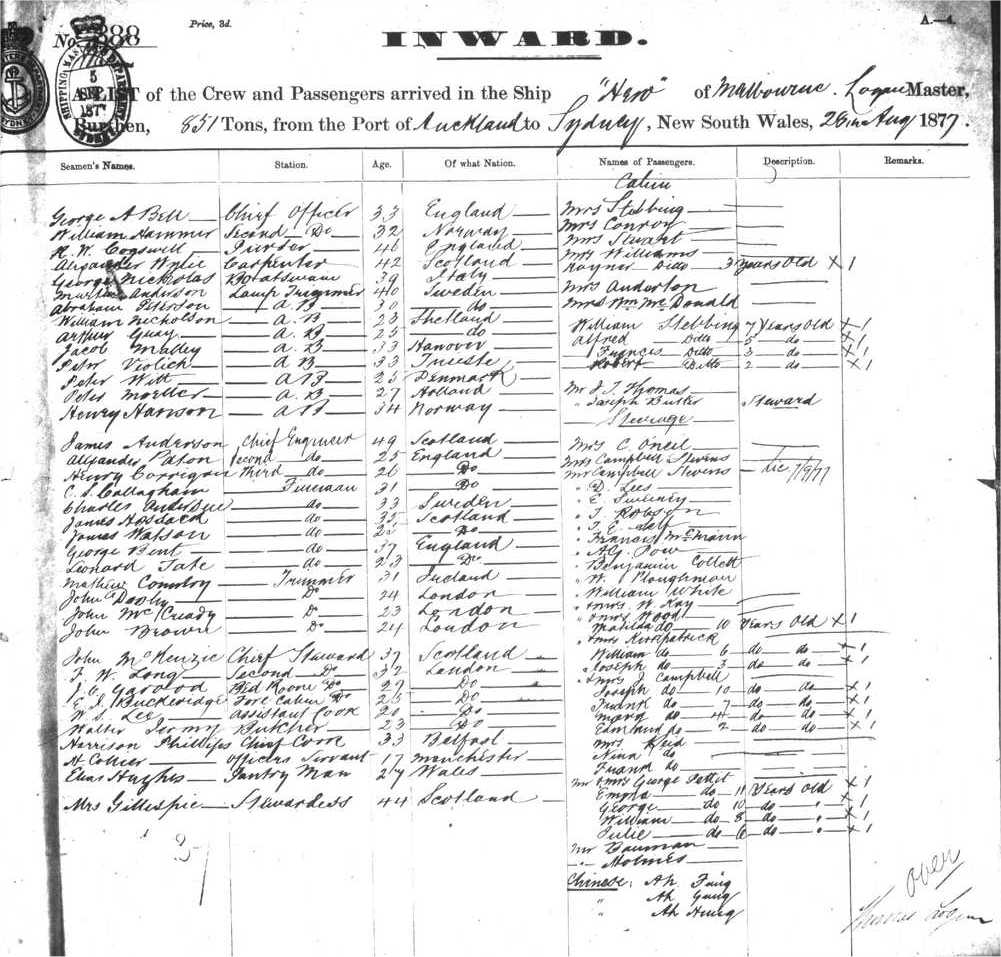 Price, 3d.
A.—4.
No. 388
INWARD.
5
SEP
187
A LIST of the Crew and Passengers arrived in the Ship "Hero" of Melbourne Logan Master,
Burthen, 851 Tons, from the Port of Auckland to Sydney, New South Wales, 28th Aug 1877.
Seamen's Names. Station. Age. Of what Nation. Names of Passengers. Description. Remarks.
Cabin
George A Bell Chief Officer 33 England Mrs Stebbing
William Hammer Second Do 32 Norway Mrs Conroy
R. W. Cogswell Purser 46 England Mrs Stewart
Alexander Wylie Carpenter 42 Scotland Mrs Williams
George Nickolas Boatswain 39 Italy Raynor Ditto 3 years old x 1
Martin Anderson Lamp Trimmer 40 Sweden Mrs Anderton
Abraham Peterson A.B 30 do Mrs Wm McDonald
William Nicholson A.B 23 Shetland William Stebbing 7 Years Old x 1
Arthur Guay A.B 25 do Alfred Ditto 5 do x 1
Jacob Malley A.B 33 Hanover Francis Ditto 3 do x 1
Peter Violich A.B 33 Trieste Robert Ditto 2 do x 1
Peter Witt A.B 25 Denmark
Peter A.B 27 Holland Mr J. J. Thomas
Henry Hanson A.B 34 Norway " Joseph Butler Steward
Steerage
James Anderson Chief Engineer 49 Scotland Mrs C. Oneil
Alexander Paton Second do 25 England Mrs Campbell Stevens
Henry Corrigan Third do 26 Do Mr Campbell Stevens 7/9/77
C. S. Callagham Fireman 31 Do " D. Lees
Charles do 33 Sweden " E. Sweeney
James do 35 Scotland " J. Robson
James Watson do Do " J. E. Self
George Bent do 37 England " Francis McMann
Leonard Tate do 23 Do " A.G. Pow
Mathew Trimmer 31 Ireland " Benjamin Collett
John Do 24 London " W. Ploughman
John McCready Do 23 London " William White
John Brown Do 24 London " & Mrs W. Kay
" & Mrs Wood
Matilda do 10 Years Old x 1
" & Mrs Kirkpatrick
John McKenzie Chief Steward 37 Scotland William do 6 do do x 1
F. W. Long Second Do 32 London " Joseph do 3 do do x 1
J. G. Garwood Bed Room Do Do " & Mrs J. Campbell
E. J. Buckeridge Fore Cabin Do Do Joseph do 10 do do x 1
W. S. Lee Assistant Cook Do Frank do 7 do do x 1
Walter Jermy Butcher 23 Do Mary do 4 do do x 1
Harrison Phillips Chief Cook 33 Belfast do 2 do do x 1
H Collier Officers Servant 17 Manchester Mrs Reid
Elias Hughes Pantry Man 27 Wales Nina do
Frank do
Mr & Mrs George Pettit
Mrs Gillespie Stewardess 44 Scotland Emma do 11 Years old x 1
George do 10 do " x 1
William do 8 do " x 1
Julie do 6 do " x 1
37
Mr Bauman
" Holmes
Chinese: Ah Fung
" Ah Gung
" Ah Hung
over
Thomas Logan